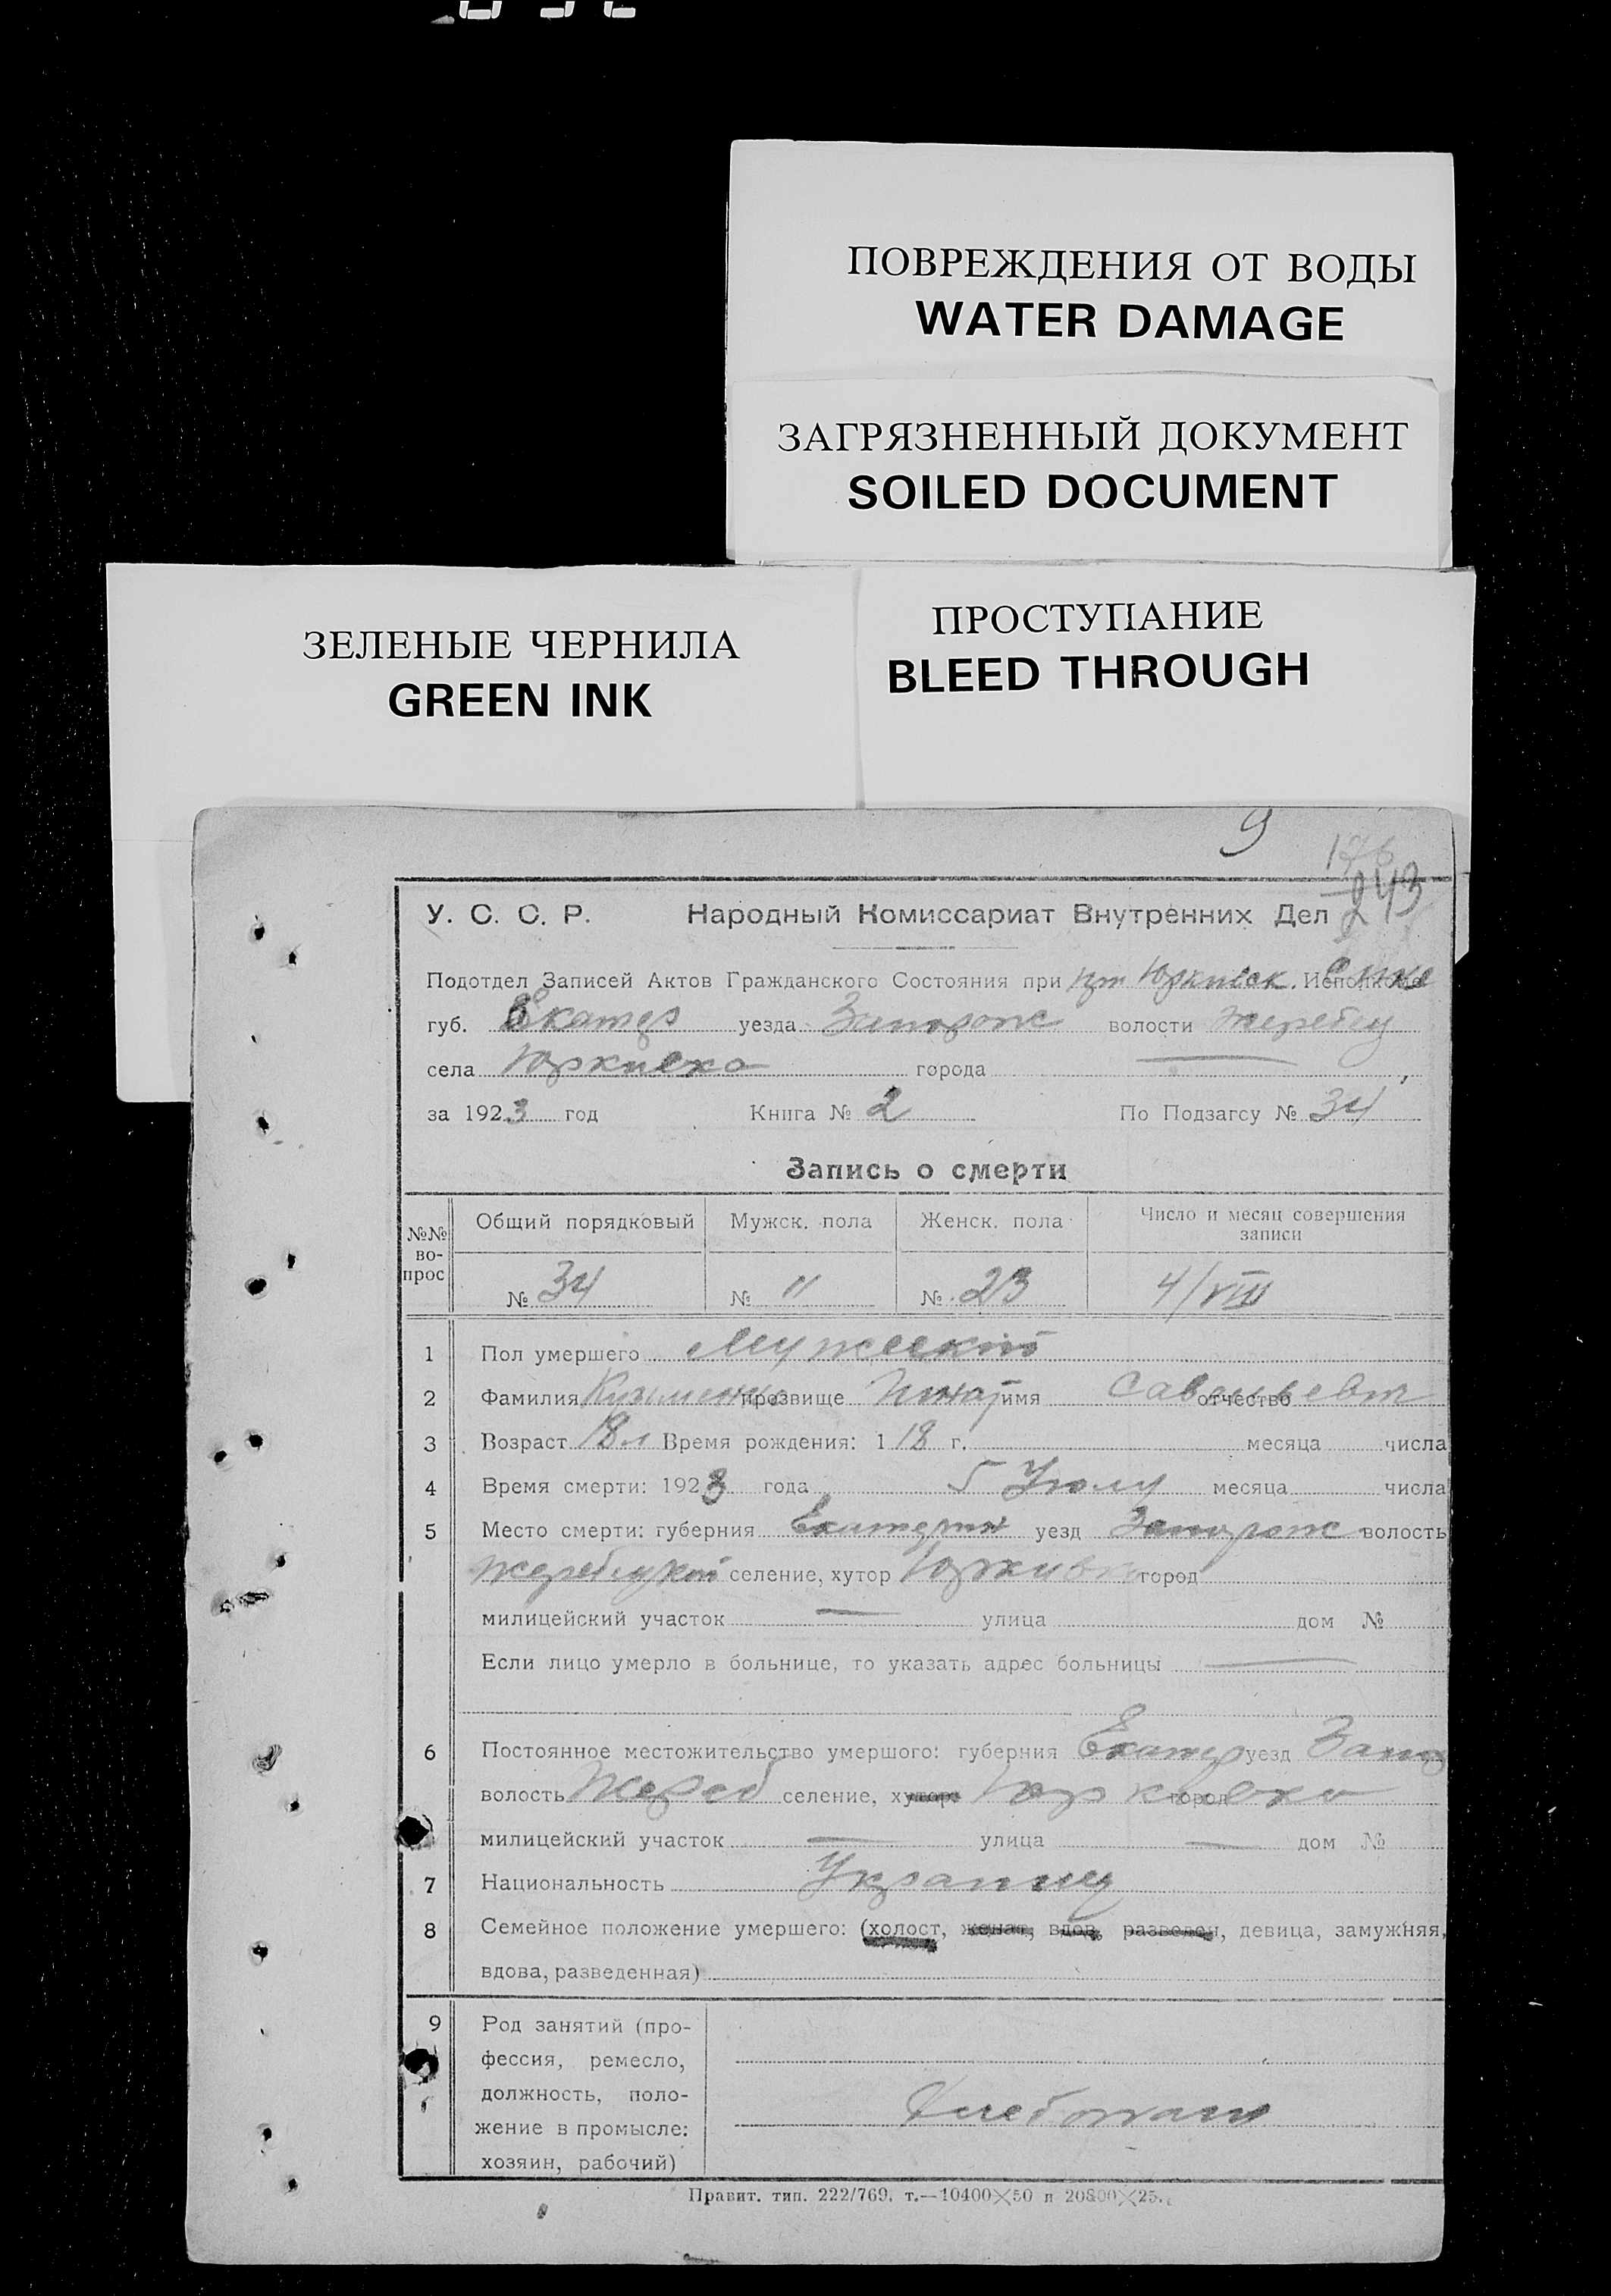 ПОВРЕЖДЕНИЯ ОТ ВОДЫ
WATER DAMAGE
ЗАГРЯЗНЕННЫЙ ДОКУМЕНТ
SOILED DOCUMENT
ЗЕЛЕНЫЕ ЧЕРНИЛА
GREEN INK
ПРОСТУПАНИЕ
BLEED THROUGH
9
243
У. С. С. Р. Народный Комиссариат Внутренних Дел
Подотдел Записей Актов Гражданского Состояния при
губ. Екатер уезда Запорож волости Жеребец
села Юркивка города
за 1923 год Книга № 2 По Подзагсу № 34
Запись о смерти
№№ во-прос Общий порядковый Мужск. пола Женск. пола Число и месяц совершения записи
№ 34 № 11 № 23 4/VIII
1 Пол умершего Мужеский
2 Фамилия Кузьменко прозвище имя отчество
3 Возраст 18 л Время рождения: 1 18 г. месяца числа
4 Время смерти: 1923 года 5 месяца числа
5 Место смерти: губерния Екатерин уезд Запорож волость
Жеребецкой селение, хутор Юркивка город
милицейский участок — улица дом №
Если лицо умерло в больнице, то указать адрес больницы —
6 Постоянное местожительство умершого: губерния Екатер уезд Запо
волость Жереб селение, хутор Юркивка город
милицейский участок — улица — дом №
7 Национальность Украинец
8 Семейное положение умершего: (холост, женат, вдов, разведен, девица, замужняя,
вдова, разведенная)
9 Род занятий (про-
фессия, ремесло,
должность, поло-
жение в промысле:
хозяин, рабочий)
Правит. тип. 222/769. т.—10400×50 и 20800×25.